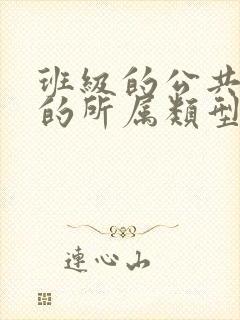 班級的公共
的所属類型
連心山